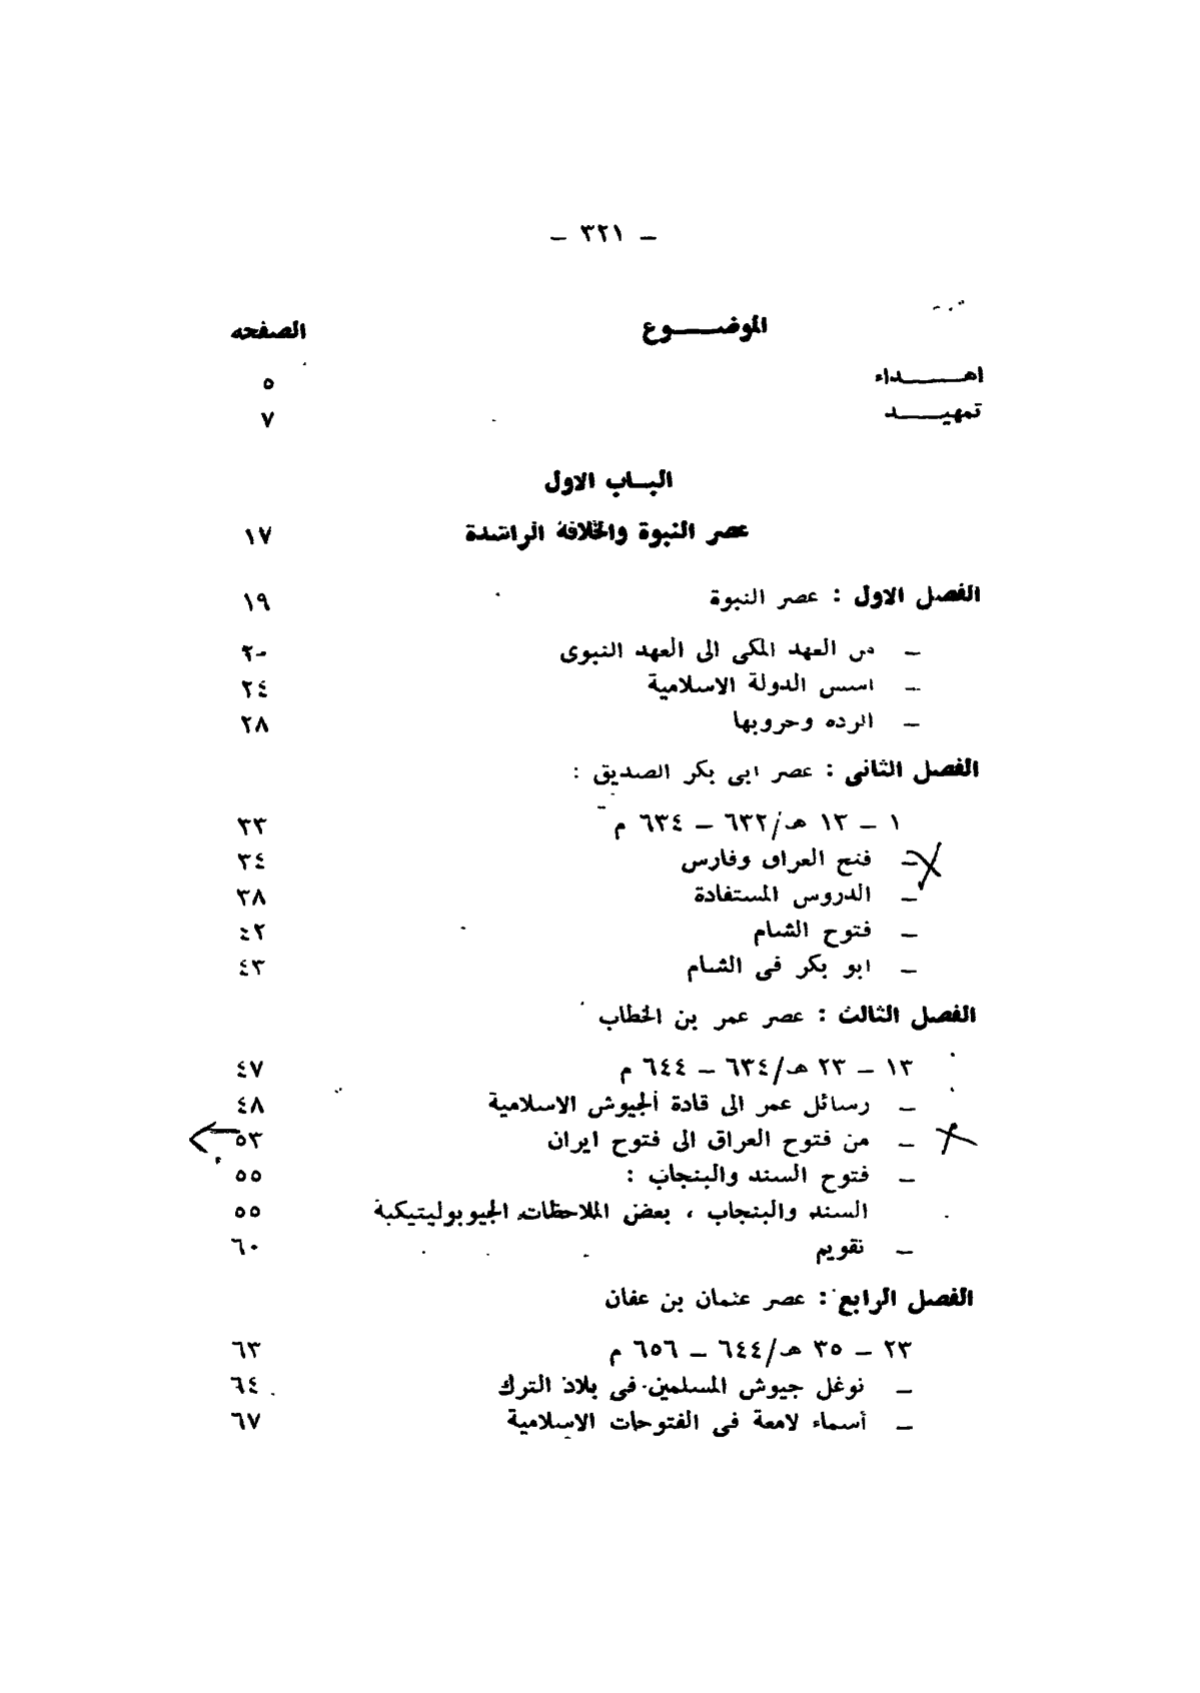 ـ ٣٢١ ـ
الموضـــوع الصفحه
اهـــداء ٥
تمهيـــد ٧
البـاب الاول
عصر النبوة والخلافة الراشدة ١٧
الفصل الاول : عصر النبوة ١٩
ـ من العهد المكى الى العهد النبوى ٢٠
ـ اسس الدولة الاسلامية ٢٤
ـ الرده وحروبها ٢٨
الفصل الثانى : عصر ابى بكر الصديق :
١ ـ ١٣ هـ/٦٣٢ ـ ٦٣٤ م ٣٣
ـ فتح العراق وفارس ٣٤
ـ الدروس المستفادة ٣٨
ـ فتوح الشام ٤٢
ـ ابو بكر فى الشام ٤٣
الفصل الثالث : عصر عمر بن الخطاب
١٣ ـ ٢٣ هـ/٦٣٤ ـ ٦٤٤ م ٤٧
ـ رسائل عمر الى قادة الجيوش الاسلامية ٤٨
ـ من فتوح العراق الى فتوح ايران ٥٣
ـ فتوح السند والبنجاب : ٥٥
السند والبنجاب ، بعض الملاحظات الجيوبوليتيكية ٥٥
ـ تقويم ٦٠
الفصل الرابع : عصر عثمان بن عفان
٢٣ ـ ٣٥ هـ/٦٤٤ ـ ٦٥٦ م ٦٣
ـ توغل جيوش المسلمين فى بلاد الترك ٦٤
ـ أسماء لامعة فى الفتوحات الاسلامية ٦٧